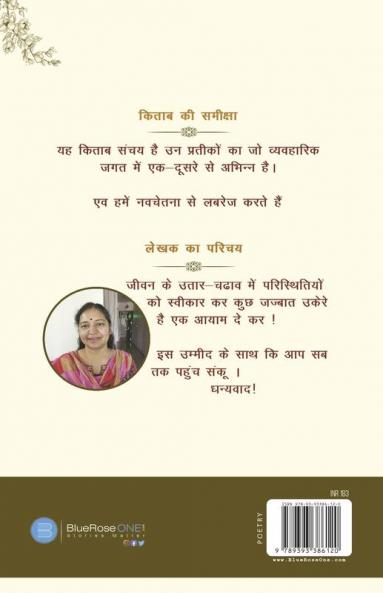 किताब की समीक्षा
यह किताब संचय है उन प्रतीकों का जो व्यवहारिक
जगत में एक–दूसरे से अभिन्न है।
एव हमें नवचेतना से लबरेज करते हैं
लेखक का परिचय
जीवन के उतार–चढाव में परिस्थितियों
को स्वीकार कर कुछ जज्बात उकेरे
है एक आयाम दे कर !
इस उम्मीद के साथ कि आप सब
तक पहुंच संकू ।
धन्यवाद!
INR 183
B
BlueRose ONE
Stories Matter
POETRY
9 789393 386120
www.BlueRoseOne.com